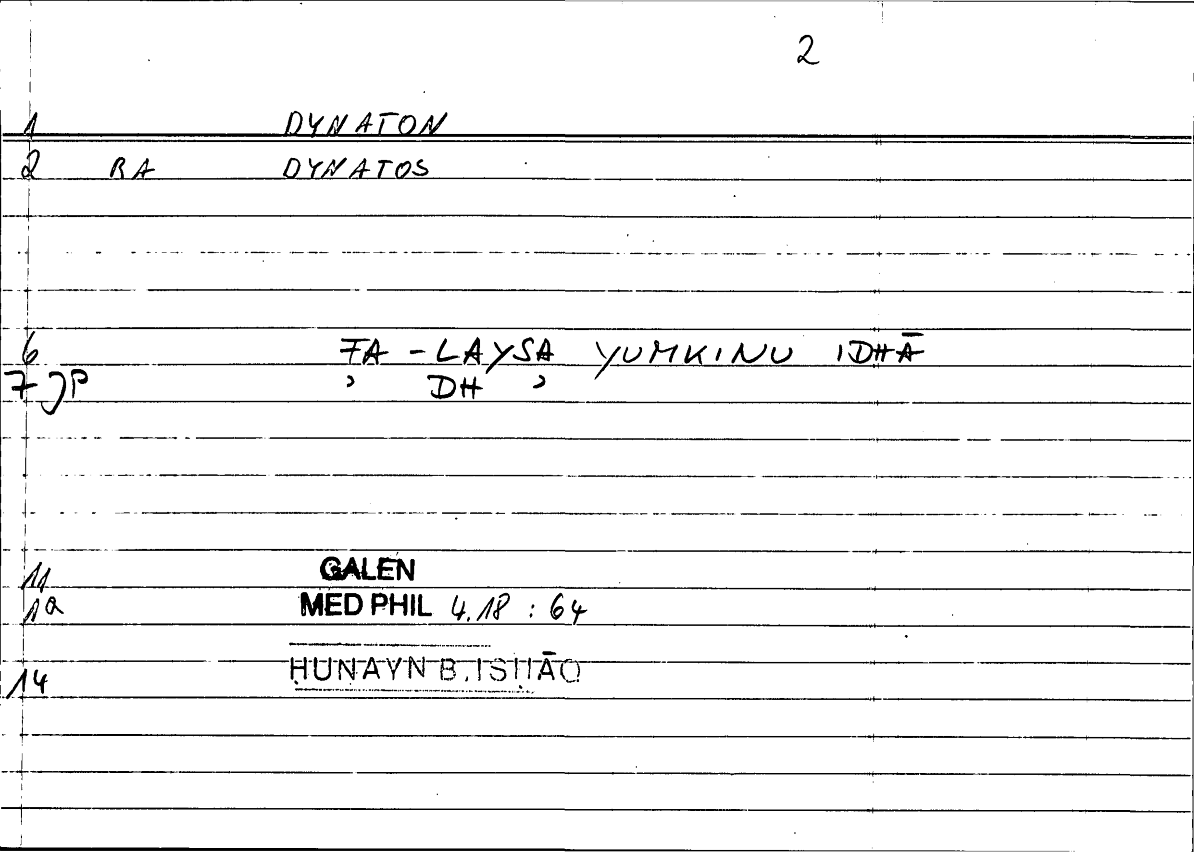 2
1 DYNATON
2 RA DYNATOS
6 FA - LAYSA YUMKINU IDHĀ
7 JP ʾ DH ʾ
11 GALEN
1a MED PHIL 4.18 : 64
14 ḤUNAYN B. ISḤĀQ